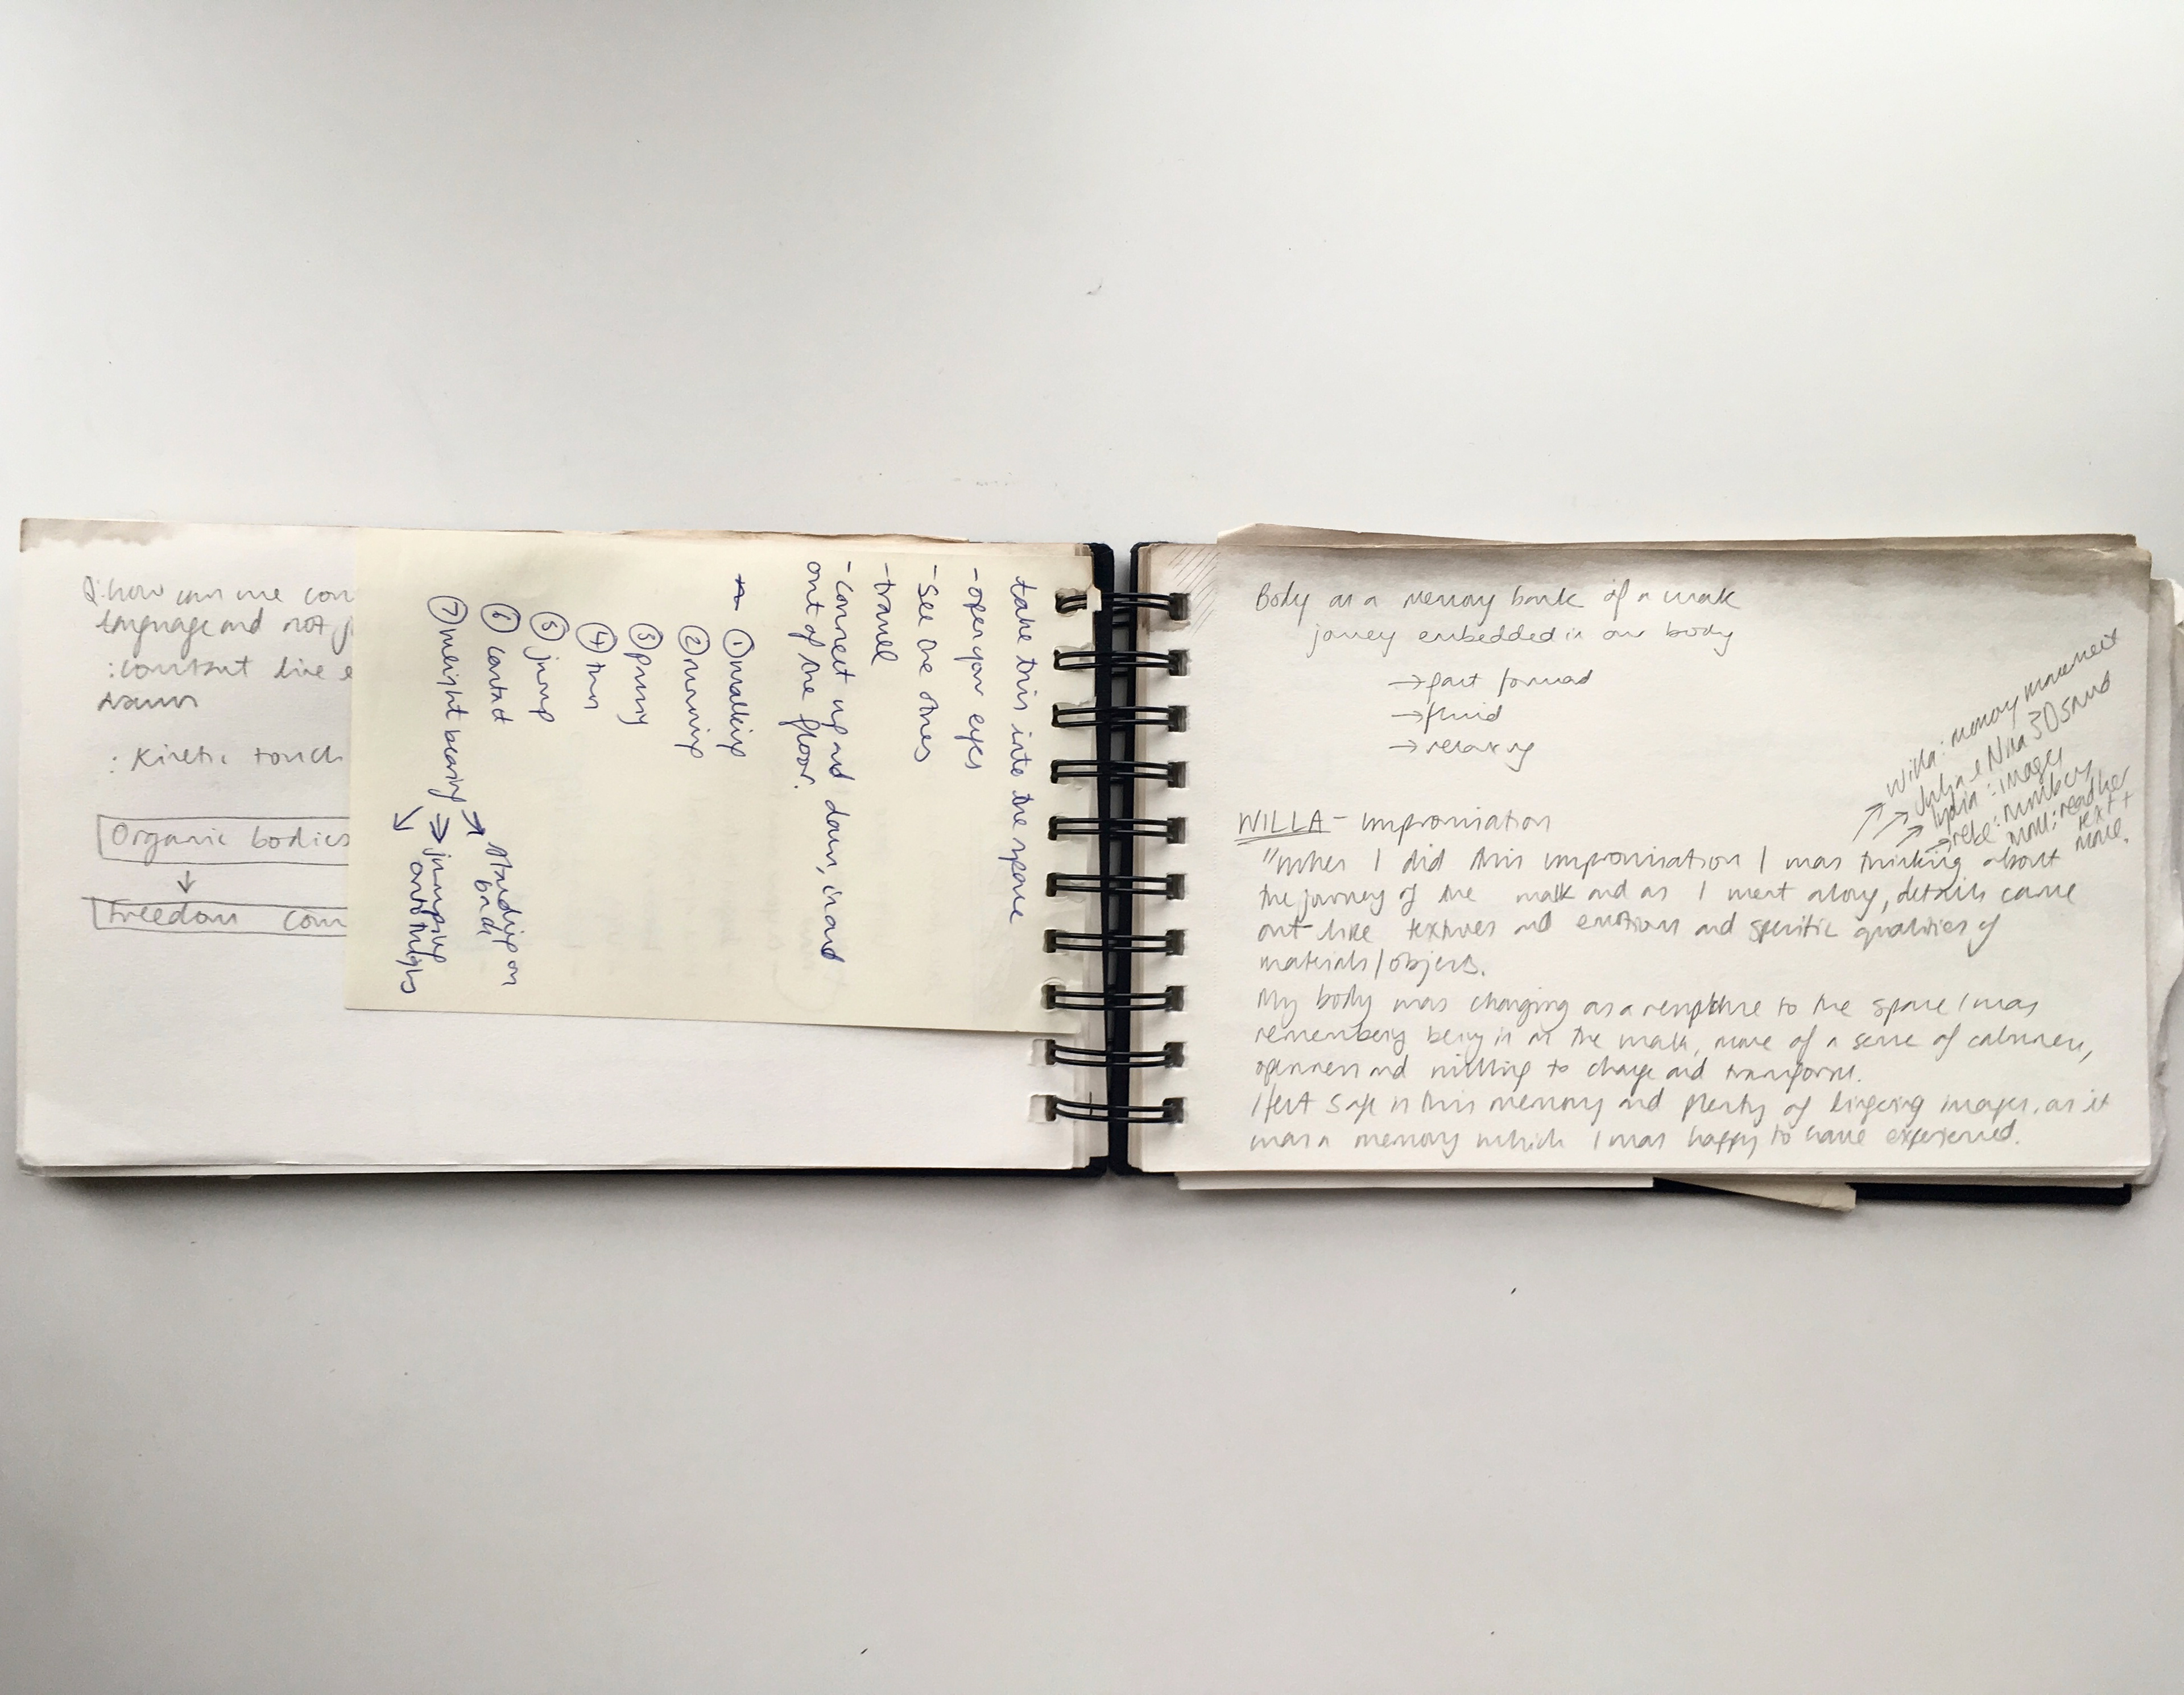 Q: how can we con
language and not
: constant live e
: Kinetic touch
Organic bodies
↓
Freedom com
take this into the space
- open your eyes
- see the others
- travel
- connect up and down, in and
out of the floor.
① walking
② running
③
④ turn
⑤ jump
⑥ contact
⑦ weight bearing
→ standing on
back
⇒ jumping
onto thighs
Body as a memory bank of a walk
journey embedded in our body
→ fast forward
→ fluid
→ relaxing
→ Willa: memory movement
→ Julia & Nina 3D
→ lydia: images
→ rebe: numbers
text +
move.
WILLA - improvisation
"When I did this improvisation I was thinking about
the journey of the walk and as I went along, details came
out like textures and emotions and specific qualities of
materials/objects.
My body was changing as a to the space I was
remembering being in in the walk, more of a sense of calmness,
openness and willing to change and transform.
I felt safe in this memory and plenty of lingering images, as it
was a memory which I was happy to have experienced.